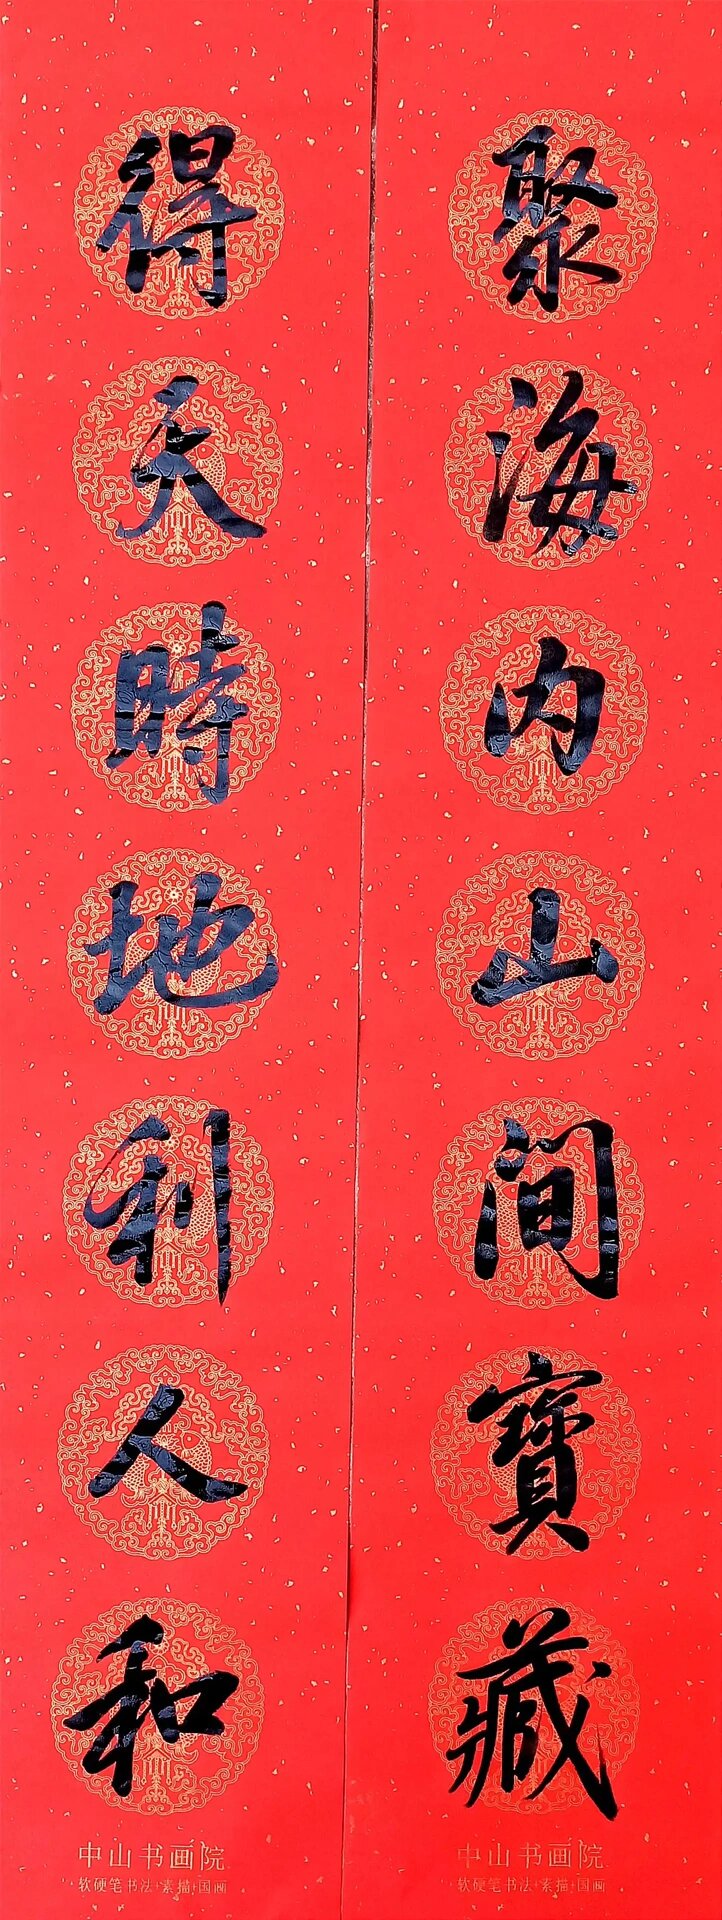 聚海内山间寳藏
得天時地利人和
中山书画院
软硬笔书法+素描+国画
中山书画院
软硬笔书法+素描+国画